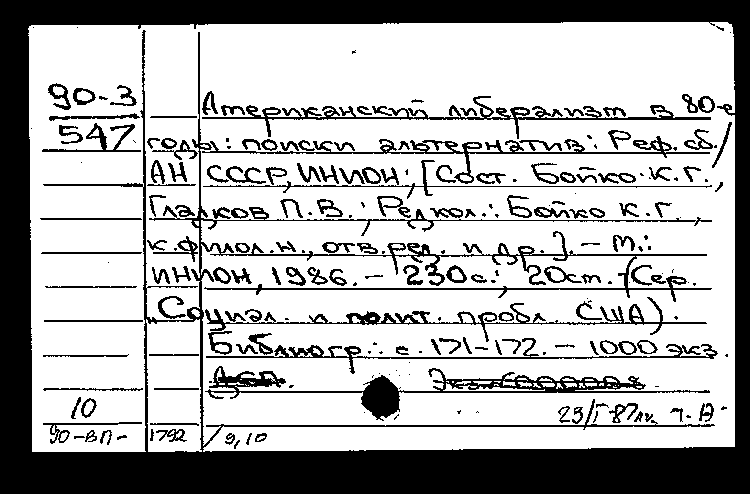 90-3
547
Американский либерализм в 80-е
годы: поиски альтернатив: Реф. сб./
АН СССР, ИНИОН; [Сост. Бойко К.Г.,
Гладков П.В.; Редкол.: Бойко К.Г.,
к.филол.н., отв.ред. и др.]. - М.:
ИНИОН, 1986. - 230с.; 20ст. -(Сер.
"Социал. и полит. пробл. США).
Библиогр.: с. 171-172. - 1000 экз.
10
23/I-87
90-ВП- 1792 / 9,10